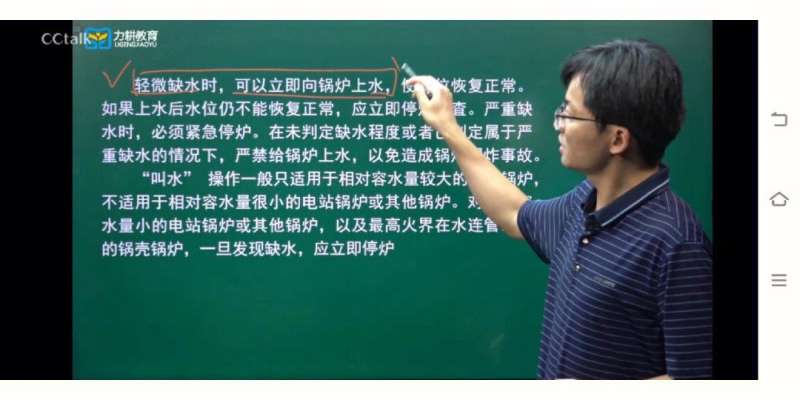 CCtalk 力耕教育
LIGENGJIAOYU
轻微缺水时，可以立即向锅炉上水，使 位恢复正常。
如果上水后水位仍不能恢复正常，应立即停 查。严重缺
水时，必须紧急停炉。在未判定缺水程度或者已 定属于严
重缺水的情况下，严禁给锅炉上水，以免造成锅 炸事故。
“叫水” 操作一般只适用于相对容水量较大的 锅炉，
不适用于相对容水量很小的电站锅炉或其他锅炉。对
水量小的电站锅炉或其他锅炉，以及最高火界在水连管
的锅壳锅炉，一旦发现缺水，应立即停炉